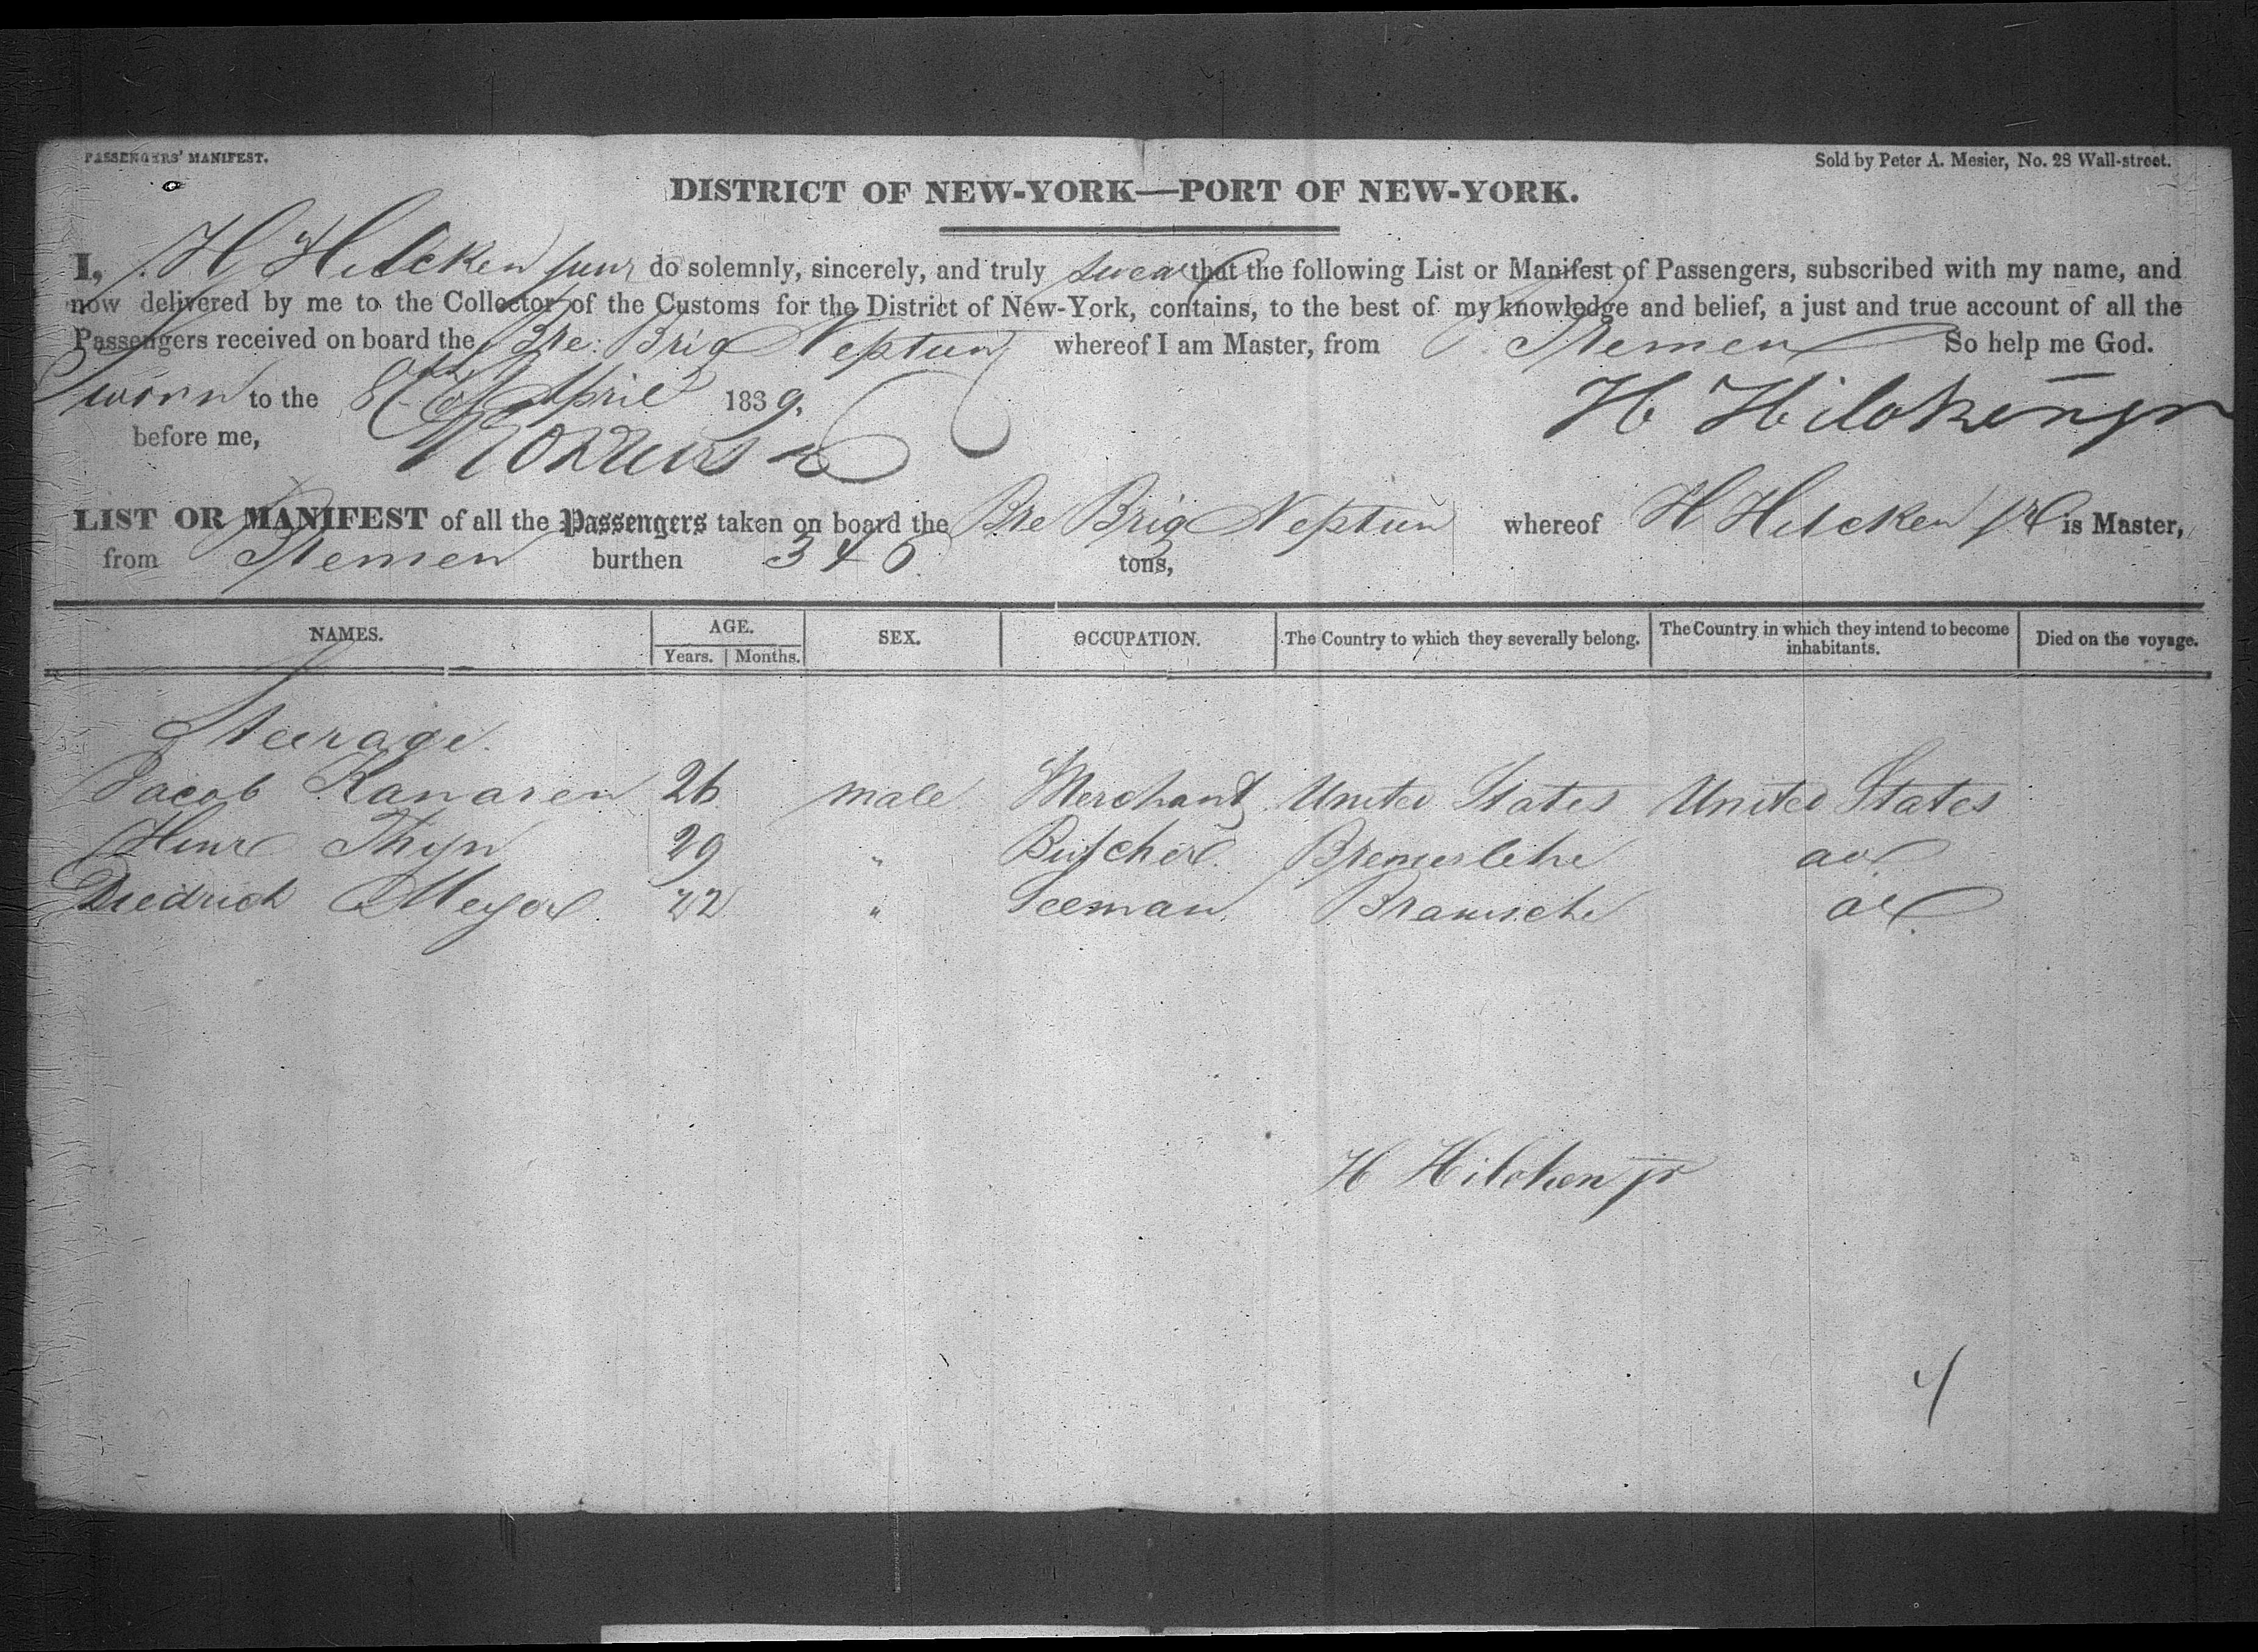 PASSENGERS' MANIFEST.
Sold by Peter A. Mesier, No. 28 Wall-street.
DISTRICT OF NEW-YORK—PORT OF NEW-YORK.
I, H Hilcken junr do solemnly, sincerely, and truly swear that the following List or Manifest of Passengers, subscribed with my name, and
now delivered by me to the Collector of the Customs for the District of New-York, contains, to the best of my knowledge and belief, a just and true account of all the
Passengers received on board the Bre: Brig Neptun whereof I am Master, from Bremen So help me God.
Sworn to the 8th of April 1839. H Hilcken jr
before me,
LIST OR MANIFEST of all the Passengers taken on board the Bre Brig Neptun whereof H Hilcken jr is Master,
from Bremen burthen tons,
NAMES. AGE. SEX. OCCUPATION. The Country to which they severally belong. The Country in which they intend to become inhabitants. Died on the voyage.
Years. Months.
Steerage.
Jacob Kanaren 26 male Merchant United States United States
Hinr Thyn 29 " Butcher Bremerlehe do
Diedrich Meyer 22 " Seeman Bramsche do
H Hilcken jr